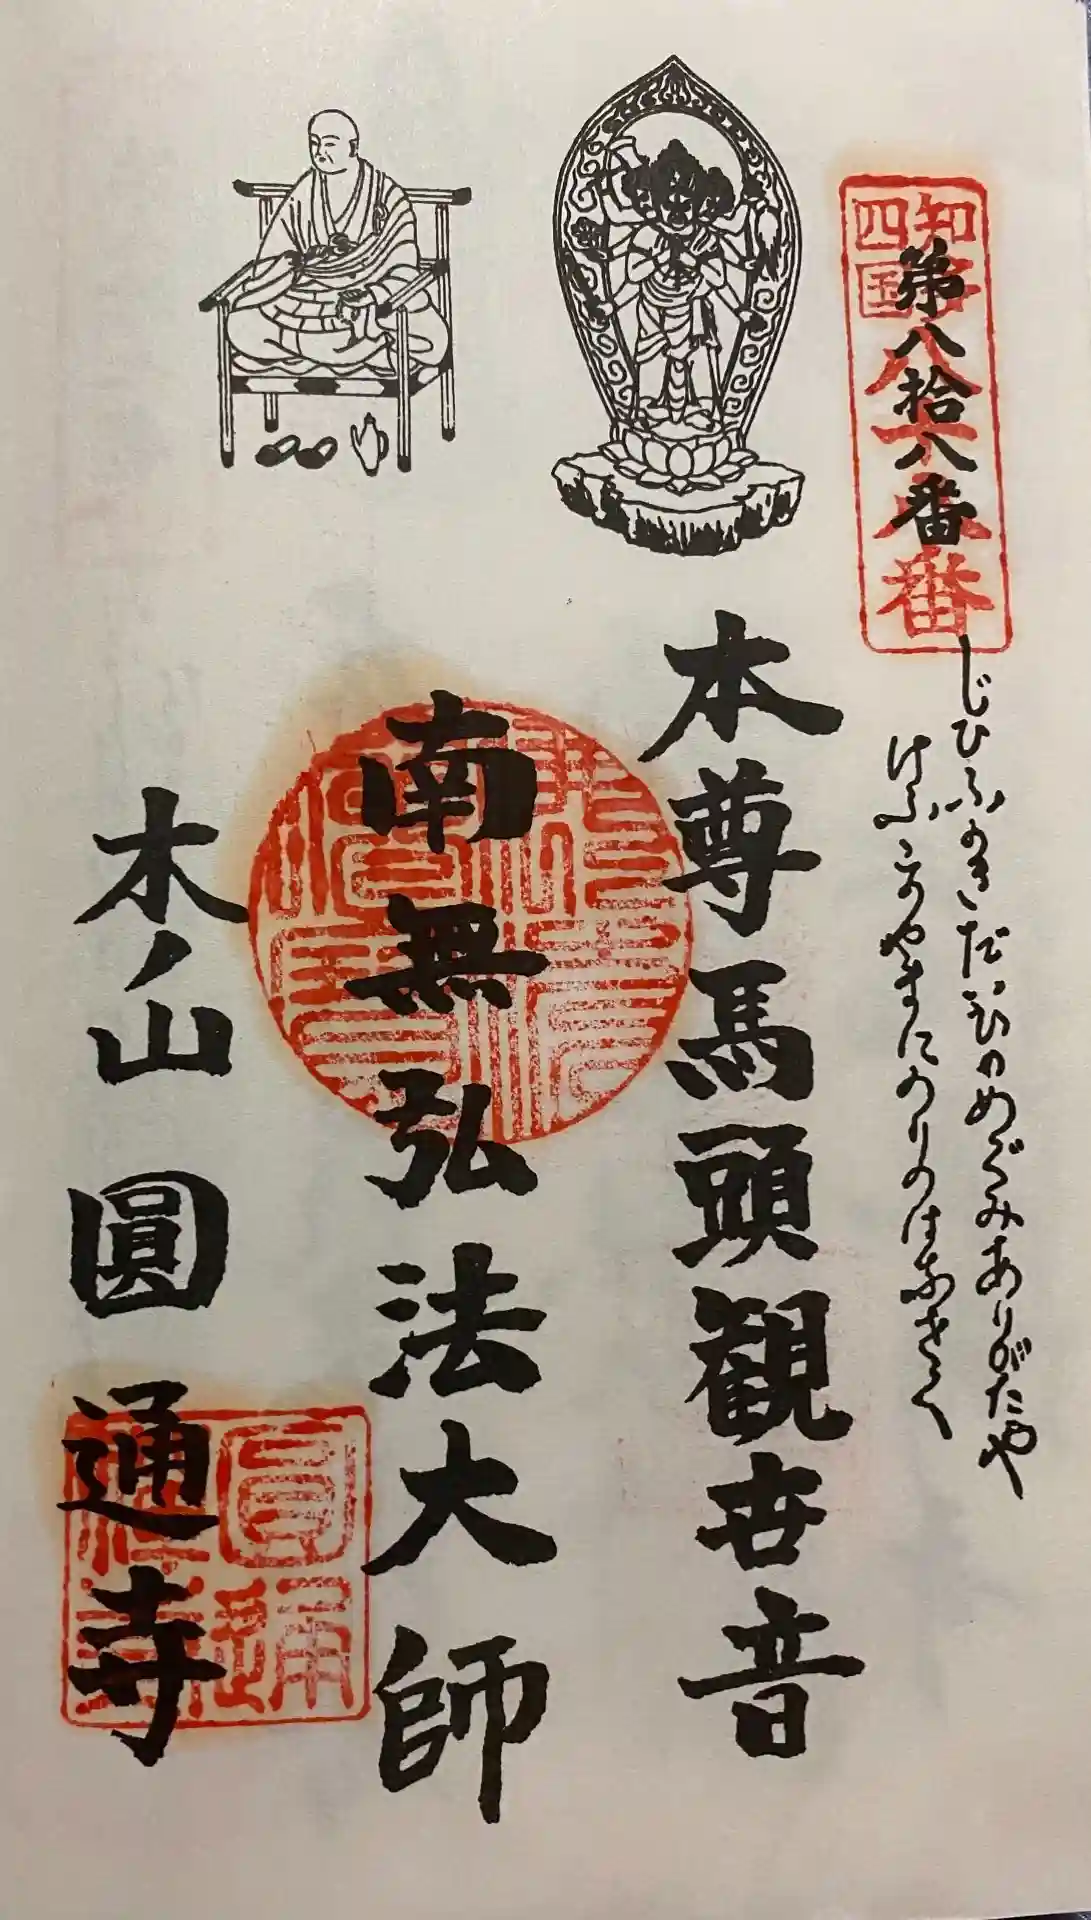 知多
四国
八十八番
第八拾八番
じひふかきだいひのめぐみありがたや
けふこのやまにのりのはなさく
本尊馬頭観世音
南無弘法大師
木ノ山圓通寺
圓通